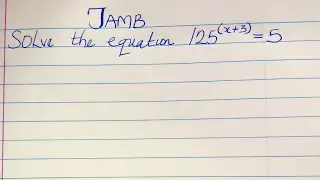 JAMB
Solve the equation 125^(x+3) = 5